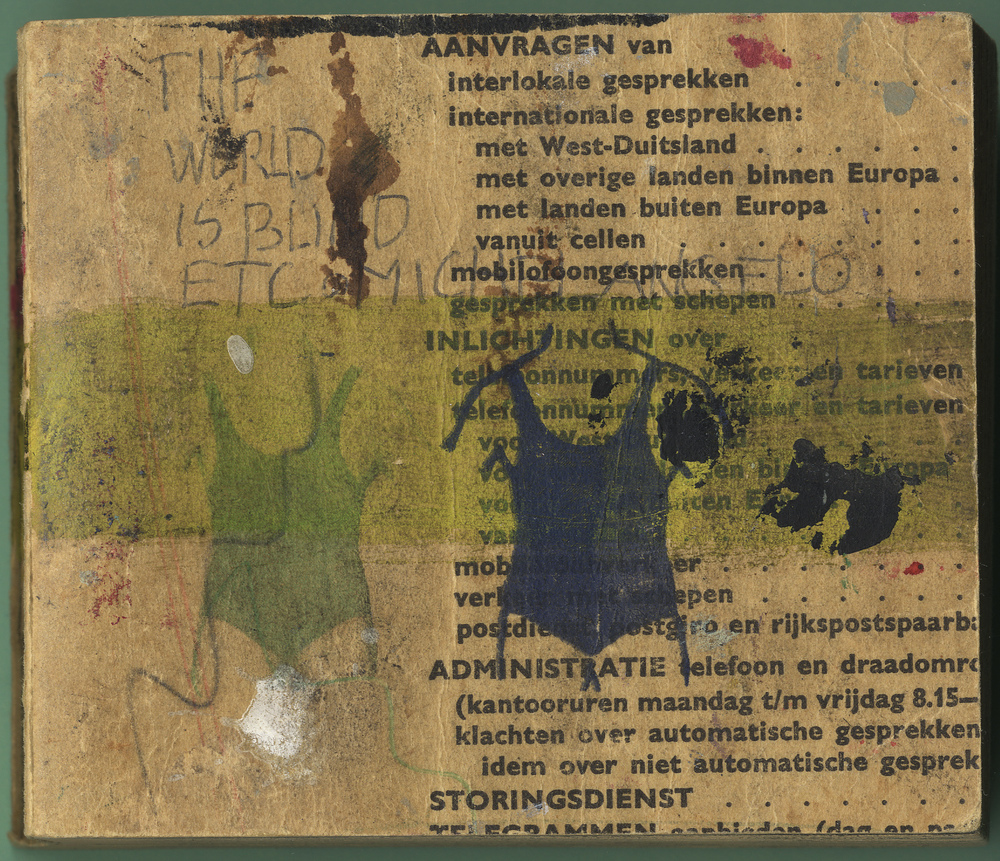 THE
WORLD
IS BLIND
ETC. MICHELANGELO
AANVRAGEN van
interlokale gesprekken . . . . .
internationale gesprekken:
met West-Duitsland . . . . . . .
met overige landen binnen Europa .
met landen buiten Europa . . . .
vanuit cellen . . . . . . . .
mobilofoongesprekken . . . . . .
gesprekken met schepen . . . . .
INLICHTINGEN over
telefoonnummers, verkeer en tarieven
telefoonnummers, verkeer en tarieven
voor West-
en binnen Europa
buiten
mobilofoonverkeer . . . . . . .
verkeer met schepen . . . . . .
postdienst, postgiro en rijkspostspaarba
ADMINISTRATIE telefoon en draadomro
(kantooruren maandag t/m vrijdag 8.15—
klachten over automatische gesprekken
idem over niet automatische gesprek
STORINGSDIENST . . . . . . .
TELEGRAMMEN aanbieden (dag en na